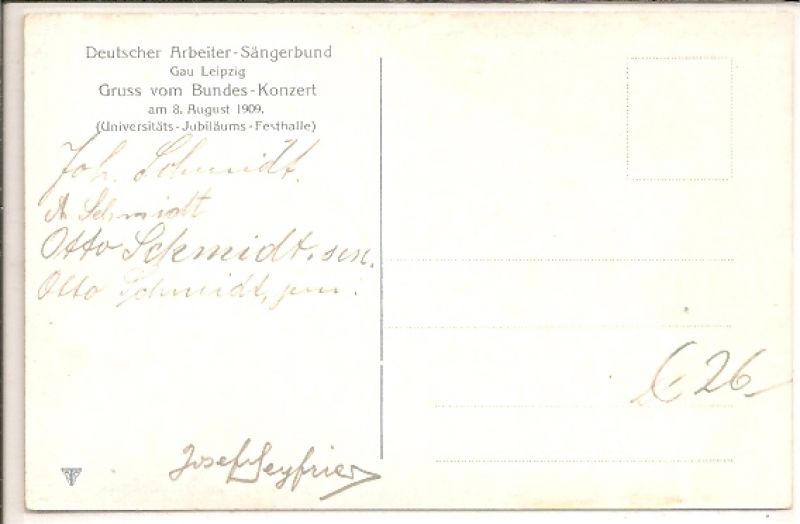 Deutscher Arbeiter-Sängerbund
Gau Leipzig
Gruss vom Bundes-Konzert
am 8. August 1909.
(Universitäts-Jubiläums-Festhalle)
Joh. Schmidt.
A Schmidt
Otto Schmidt. sen.
Otto Schmidt, jun.
26
Josef Seyfried